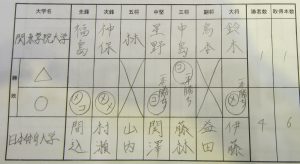 大学名 先鋒 次鋒 五将 中堅 三将 副将 大将 勝者数 取得本数
関東学院大学 福島 仲保 林 星野 中島 島本 鈴木 1 1
勝敗 △ ○
日本体育大学 間込 村 山内 関澤 藤林 益田 伊藤 4 6